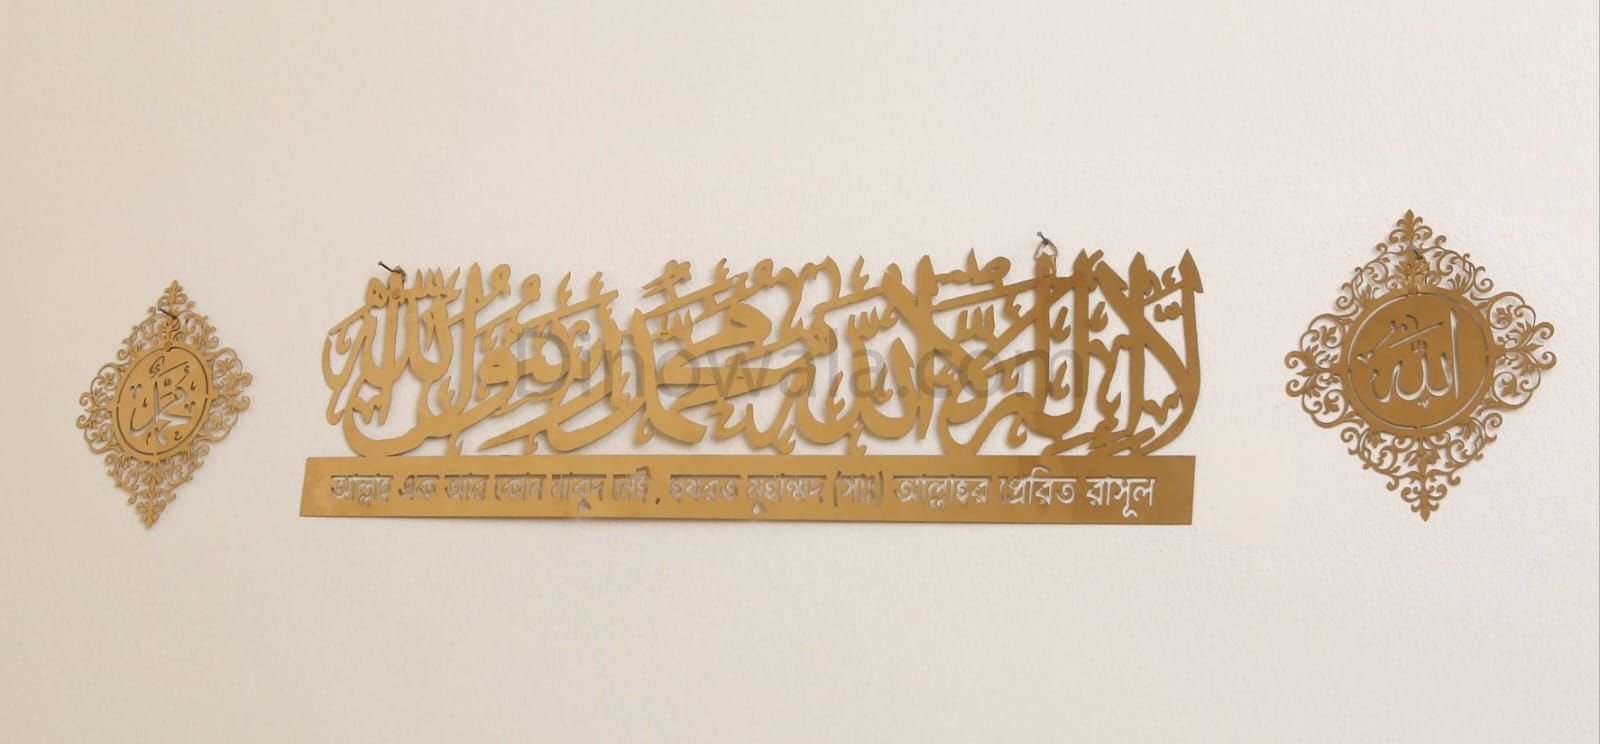 لا إله إلا الله محمد رسول الله
আল্লাহ এক আর কোন মাবুদ নেই, হযরত মুহাম্মদ (সাঃ) আল্লাহর প্রেরিত রাসূল
الله
محمد
Dinowala.com